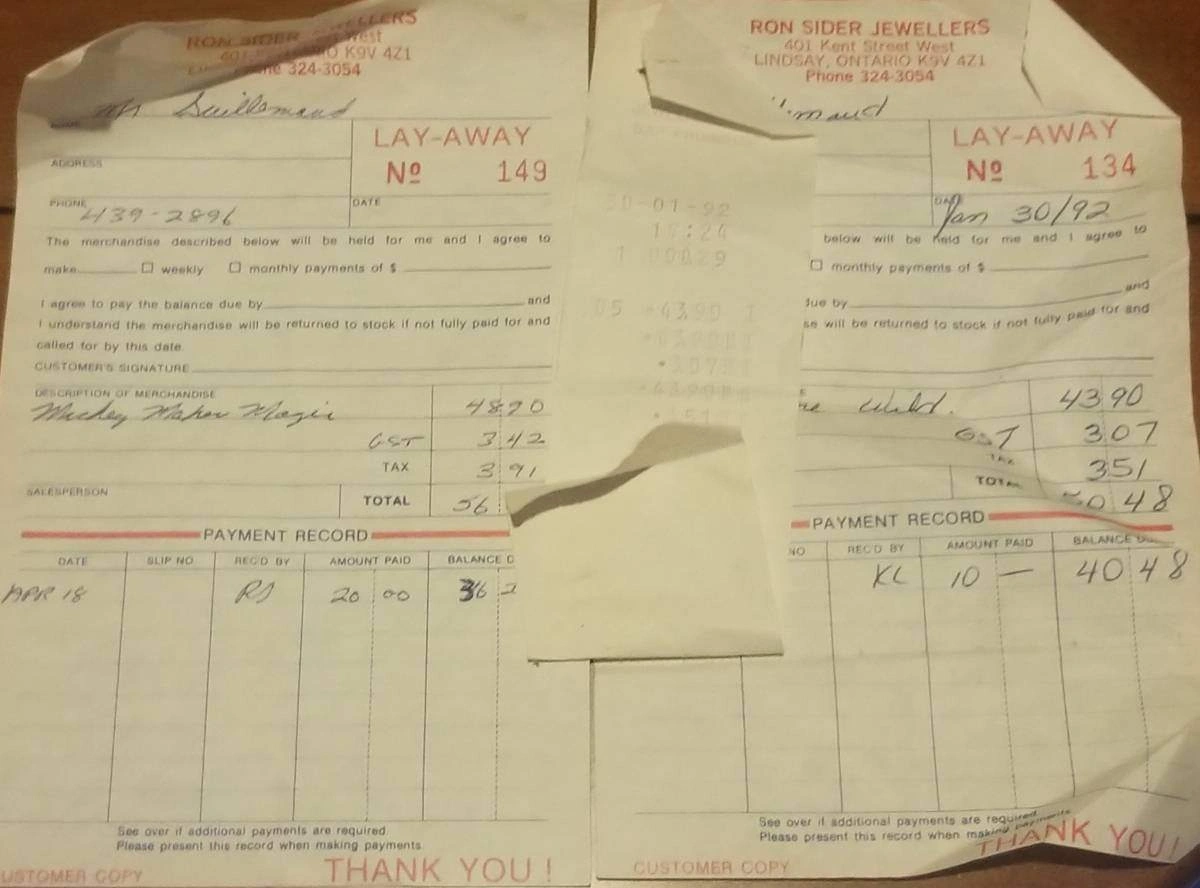 RON SIDER JEWELLERS
West
401 K9V 4Z1
324-3054
LAY-AWAY
Nº 149
ADDRESS
PHONE 439-2896
DATE
The merchandise described below will be held for me and I agree to
make weekly monthly payments of $
I agree to pay the balance due by and
I understand the merchandise will be returned to stock if not fully paid for and
called for by this date.
CUSTOMER'S SIGNATURE
DESCRIPTION OF MERCHANDISE
Mickey Magic 48 90
GST 3 42
TAX 3 91
SALESPERSON
TOTAL 56
PAYMENT RECORD
DATE SLIP NO REC'D BY AMOUNT PAID BALANCE D
APR 18 RS 20 00 36 2
See over if additional payments are required.
Please present this record when making payments.
USTOMER COPY THANK YOU!
30-01-92
17:24
RON SIDER JEWELLERS
401 Kent Street West
LINDSAY, ONTARIO K9V 4Z1
Phone 324-3054
maud
LAY-AWAY
Nº 134
DATE
Jan 30/92
below will be held for me and I agree to
monthly payments of $
due by and
se will be returned to stock if not fully paid for and
43 90
GST 3 07
TAX 3 51
TOTAL 50 48
PAYMENT RECORD
NO REC'D BY AMOUNT PAID BALANCE
KL 10 — 40 48
See over if additional payments are required.
Please present this record when making payments.
CUSTOMER COPY THANK YOU!